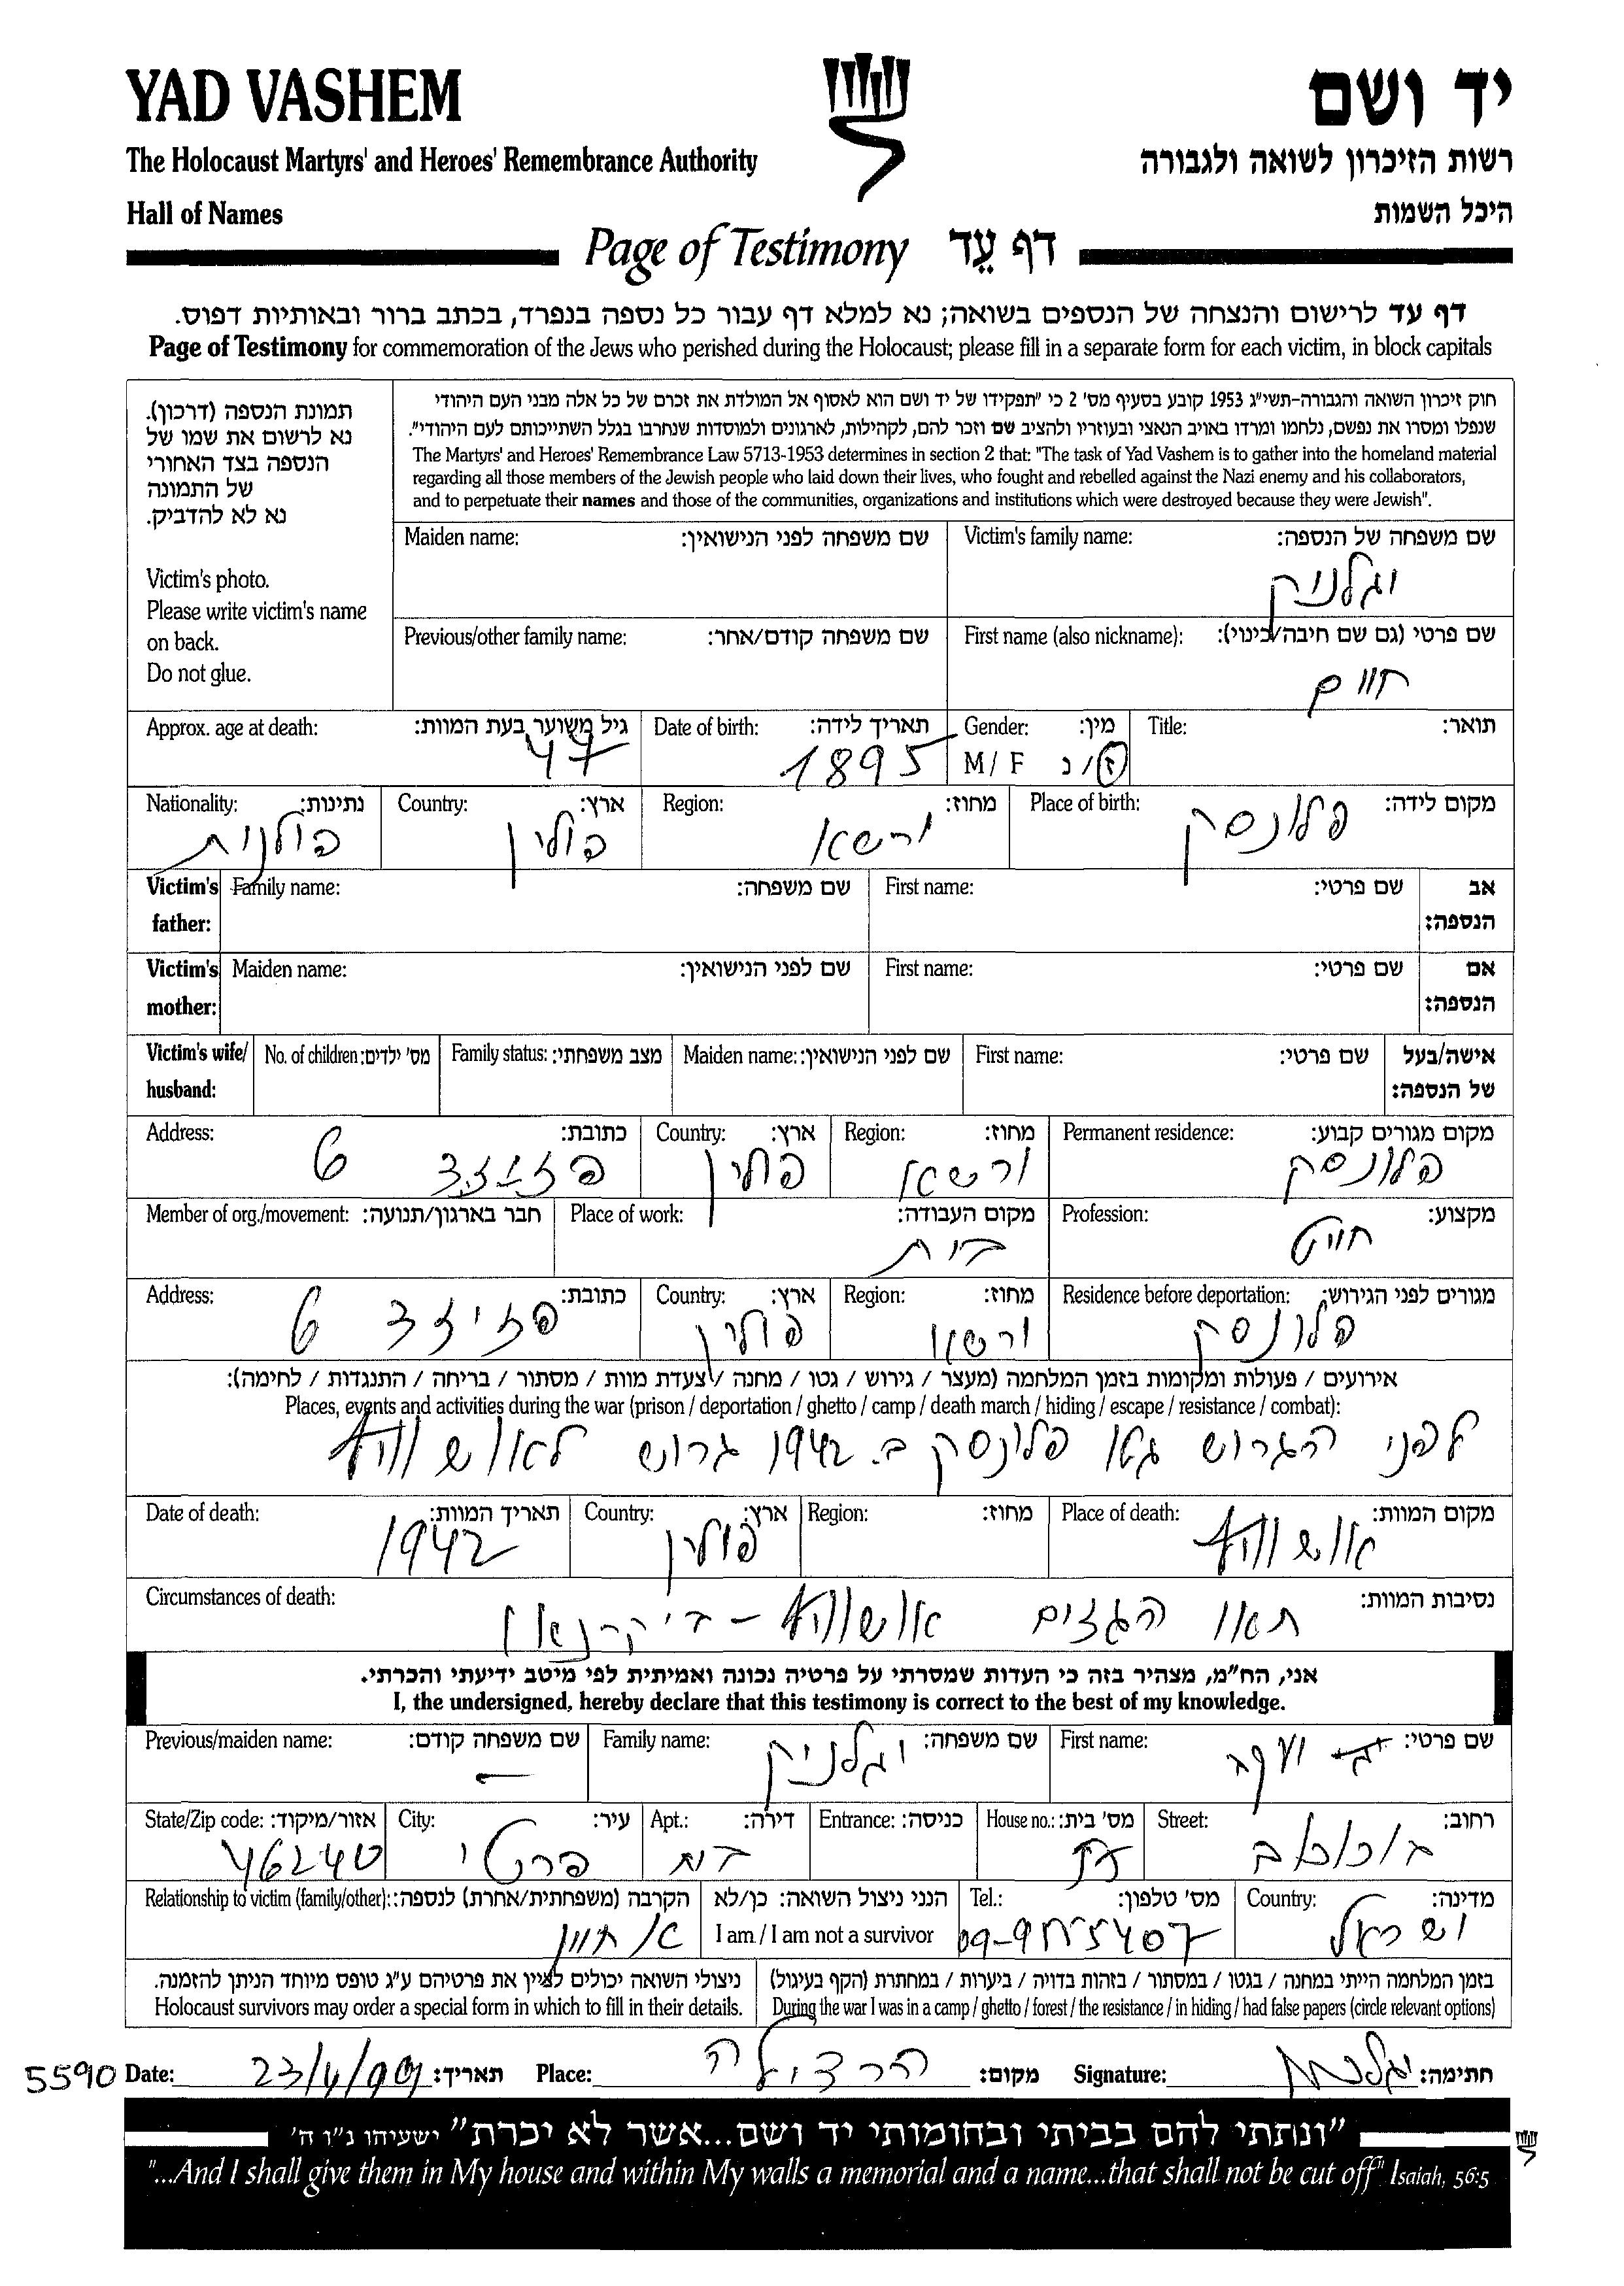 YAD VASHEM
יד ושם
The Holocaust Martyrs' and Heroes' Remembrance Authority
רשות הזיכרון לשואה ולגבורה
Hall of Names
היכל השמות
Page of Testimony דף עֵד
דף עד לרישום והנצחה של הנספים בשואה; נא למלא דף עבור כל נספה בנפרד, בכתב ברור ובאותיות דפוס.
Page of Testimony for commemoration of the Jews who perished during the Holocaust; please fill in a separate form for each victim, in block capitals
תמונת הנספה (דרכון).
נא לרשום את שמו של
הנספה בצד האחורי
של התמונה
נא לא להדביק.
Victim's photo.
Please write victim's name
on back.
Do not glue.
חוק זיכרון השואה והגבורה-תשי"ג 1953 קובע בסעיף מס' 2 כי "תפקידו של יד ושם הוא לאסוף אל המולדת את זכרם של כל אלה מבני העם היהודי
שנפלו ומסרו את נפשם, נלחמו ומרדו באויב הנאצי ובעוזריו ולהציב שם וזכר להם, לקהילות, לארגונים ולמוסדות שנחרבו בגלל השתייכותם לעם היהודי".
The Martyrs' and Heroes' Remembrance Law 5713-1953 determines in section 2 that: "The task of Yad Vashem is to gather into the homeland material
regarding all those members of the Jewish people who laid down their lives, who fought and rebelled against the Nazi enemy and his collaborators,
and to perpetuate their names and those of the communities, organizations and institutions which were destroyed because they were Jewish".
Victim's family name: שם משפחה של הנספה:
וגלניק
Maiden name: שם משפחה לפני הנישואין:
First name (also nickname): שם פרטי (גם שם חיבה/כינוי):
חיים
Previous/other family name: שם משפחה קודם/אחר:
Title: תואר:
Gender: מין:
M / F ז/נ
Date of birth: תאריך לידה:
1895
Approx. age at death: גיל משוער בעת המוות:
47
Place of birth: מקום לידה:
פלונסק
Region: מחוז:
ורשא
Country: ארץ:
פולין
Nationality: נתינות:
פולנית
Victim's father: אב הנספה:
First name: שם פרטי:
Family name: שם משפחה:
Victim's mother: אם הנספה:
First name: שם פרטי:
Maiden name: שם לפני הנישואין:
Victim's wife/ husband: אישה/בעל של הנספה:
First name: שם פרטי:
Maiden name: שם לפני הנישואין:
Family status: מצב משפחתי:
No. of children: מס' ילדים:
Permanent residence: מקום מגורים קבוע:
פלונסק
Region: מחוז:
ורשא
Country: ארץ:
פולין
Address: כתובת:
6
Profession: מקצוע:
חייט
Place of work: מקום העבודה:
בית
Member of org./movement: חבר בארגון/תנועה:
Residence before deportation: מגורים לפני הגירוש:
פלונסק
Region: מחוז:
ורשא
Country: ארץ:
פולין
Address: כתובת:
6
אירועים / פעולות ומקומות בזמן המלחמה (מעצר / גירוש / גטו / מחנה / צעדת מוות / מסתור / בריחה / התנגדות / לחימה):
Places, events and activities during the war (prison / deportation / ghetto / camp / death march / hiding / escape / resistance / combat):
לפני הגרוש גטו פלונסק ב. 1942 גרוש לאושוויץ
Place of death: מקום המוות:
אושוויץ
Region: מחוז:
Country: ארץ:
פולין
Date of death: תאריך המוות:
1942
Circumstances of death: נסיבות המוות:
תאו הגזים אושוויץ - בירקנאו
אני, הח"מ, מצהיר בזה כי העדות שמסרתי על פרטיה נכונה ואמיתית לפי מיטב ידיעתי והכרתי.
I, the undersigned, hereby declare that this testimony is correct to the best of my knowledge.
First name: שם פרטי:
יעקב
Family name: שם משפחה:
וגלניק
Previous/maiden name: שם משפחה קודם:
—
Street: רחוב:
House no.: מס' בית:
Entrance: כניסה:
Apt.: דירה:
City: עיר:
פרטי
State/Zip code: אזור/מיקוד:
46240
Country: מדינה:
ישראל
Tel.: מס' טלפון:
09-9555407
הנני ניצול השואה: כן/לא
I am / I am not a survivor
Relationship to victim (family/other): הקרבה (משפחתית/אחרת) לנספה:
אחיין
בזמן המלחמה הייתי במחנה / בגטו / במסתור / בזהות בדויה / ביערות / במחתרת (הקף בעיגול)
During the war I was in a camp / ghetto / forest / the resistance / in hiding / had false papers (circle relevant options)
ניצולי השואה יכולים לציין את פרטיהם ע"ג טופס מיוחד הניתן להזמנה.
Holocaust survivors may order a special form in which to fill in their details.
Signature: חתימה:
וגלניק
Place: מקום:
הרצליה
Date: תאריך:
23/4/99
5590
"ונתתי להם בביתי ובחומותי יד ושם...אשר לא יכרת" ישעיהו נ"ו ה'
"...And I shall give them in My house and within My walls a memorial and a name...that shall not be cut off" Isaiah, 56:5